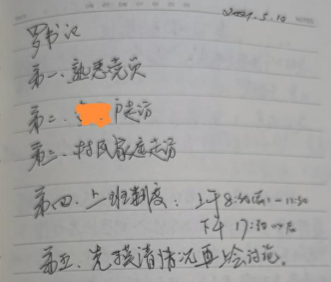 2021.5.10
罗书记
第一、熟悉党员
第二、户走访
第三、村民家庭走访
第四、上班制度：上午8:30(前)-11:30
下午 17:30以后
第五、先摸清情况再上会讨论。